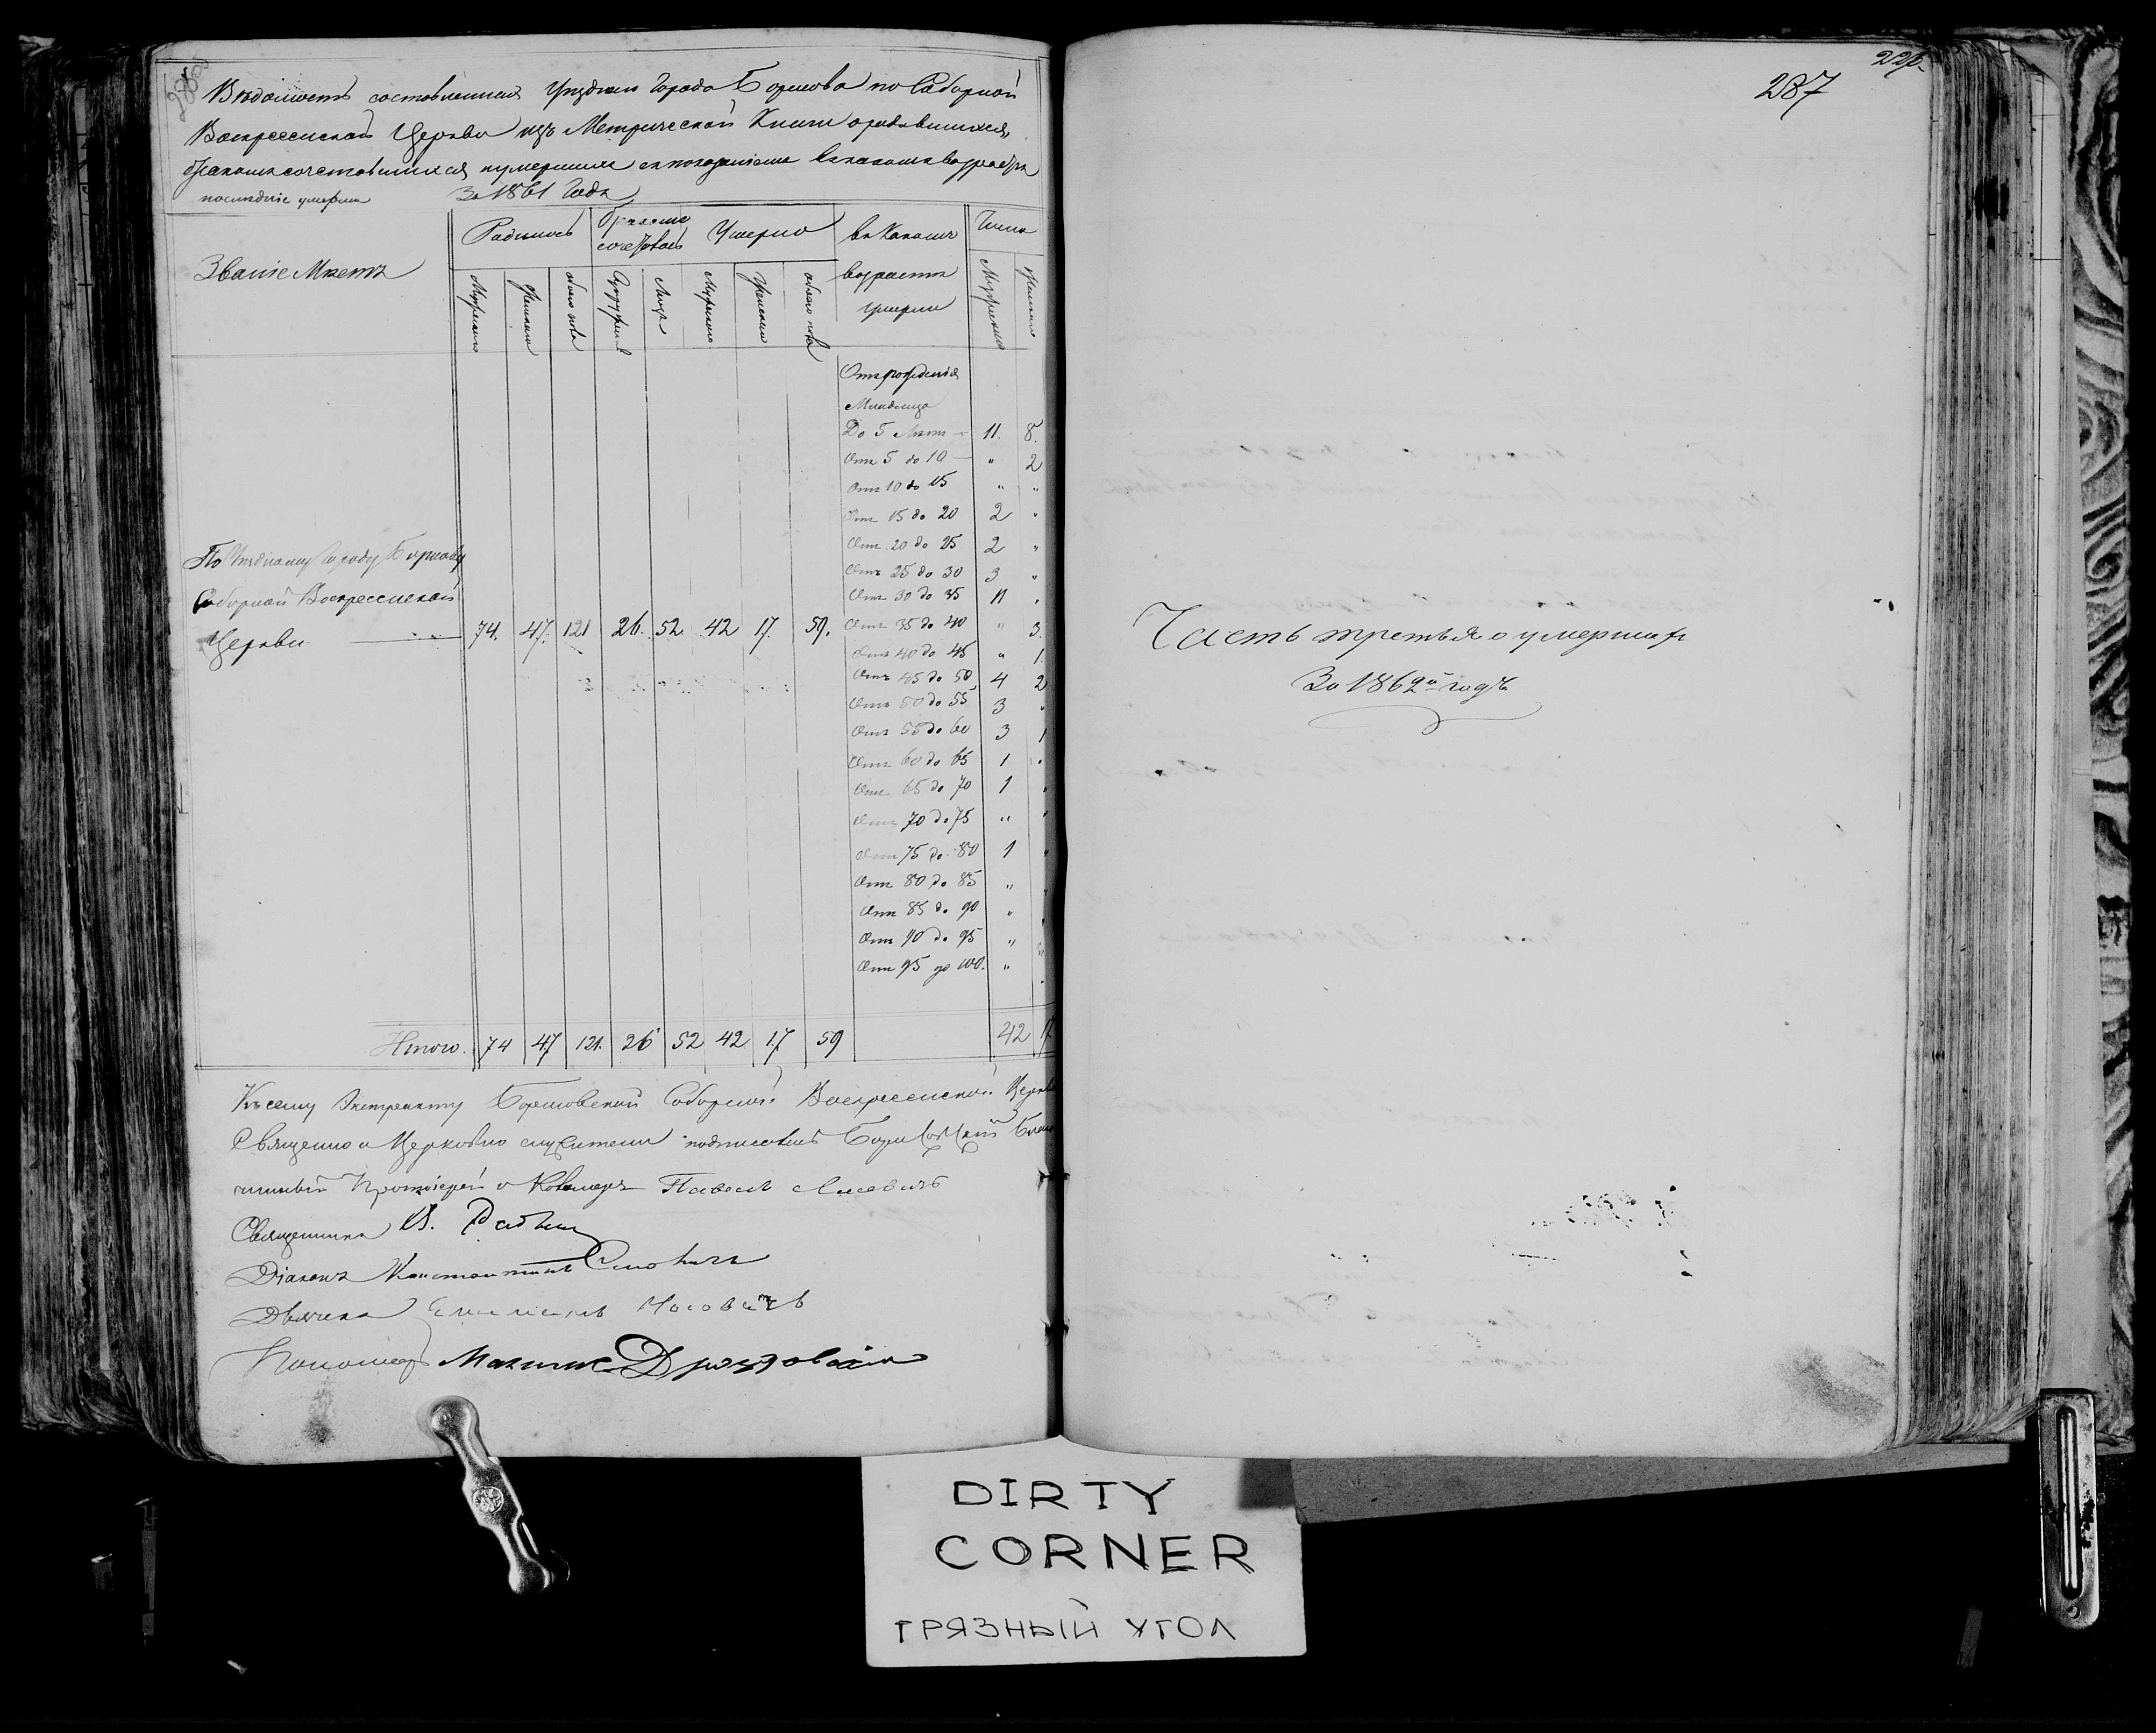 Вѣдомость составленная Уѣзднаго Города Борисова по Соборной
Воскресенской Церкви изъ Метрической Книги о родившихся,
бракомъ сочетавшихся и умершихъ съ показаніемъ въ какомъ возрастѣ
послѣдніе умерли За 1861 Годъ
Званіе Мѣстъ
Родилось
бракомъ сочеталось
Умерло
въ Какомъ возрастѣ умерли
Число
Мужескаго
Женскаго
обоего пола
Супружествъ
Лицъ
Мужескаго
Женскаго
обоего пола
Мужескаго
Женскаго
Отъ рожденія
Младенца
До 5 Лѣтъ 11. 8.
Отъ 5 до 10 " 2
Отъ 10 до 15 " "
Отъ 15 до 20 2 "
Отъ 20 до 25 2 "
Отъ 25 до 30 3 "
Отъ 30 до 35 11 "
Отъ 35 до 40 " 3.
Отъ 40 до 45 " 1.
Отъ 45 до 50 4 2
Отъ 50 до 55 3 "
Отъ 55 до 60 3 1
Отъ 60 до 65 1 "
Отъ 65 до 70 1 "
Отъ 70 до 75 " "
Отъ 75 до 80 1 "
Отъ 80 до 85 " "
Отъ 85 до 90 " "
Отъ 90 до 95 " "
Отъ 95 до 100. "
По Уѣздному Городу Борисову
Соборной Воскресенской
Церкви 74. 47. 121 26. 52. 42 17. 59.
Итого. 74 47 121. 26 52 42 17 59 42 17
Къ сему Экстракту Борисовской Соборной Воскресенской Церкви
Священно и Церковно служители подписались Борисовскій Благо
чинный Протоіерей и Кавалеръ Павелъ
Священникъ
Діаконъ Константинъ
Дьячекъ
Пономарь
287
Часть третья о умершихъ
За 1862й годъ
DIRTY
CORNER
ГРЯЗНЫЙ УГОЛ